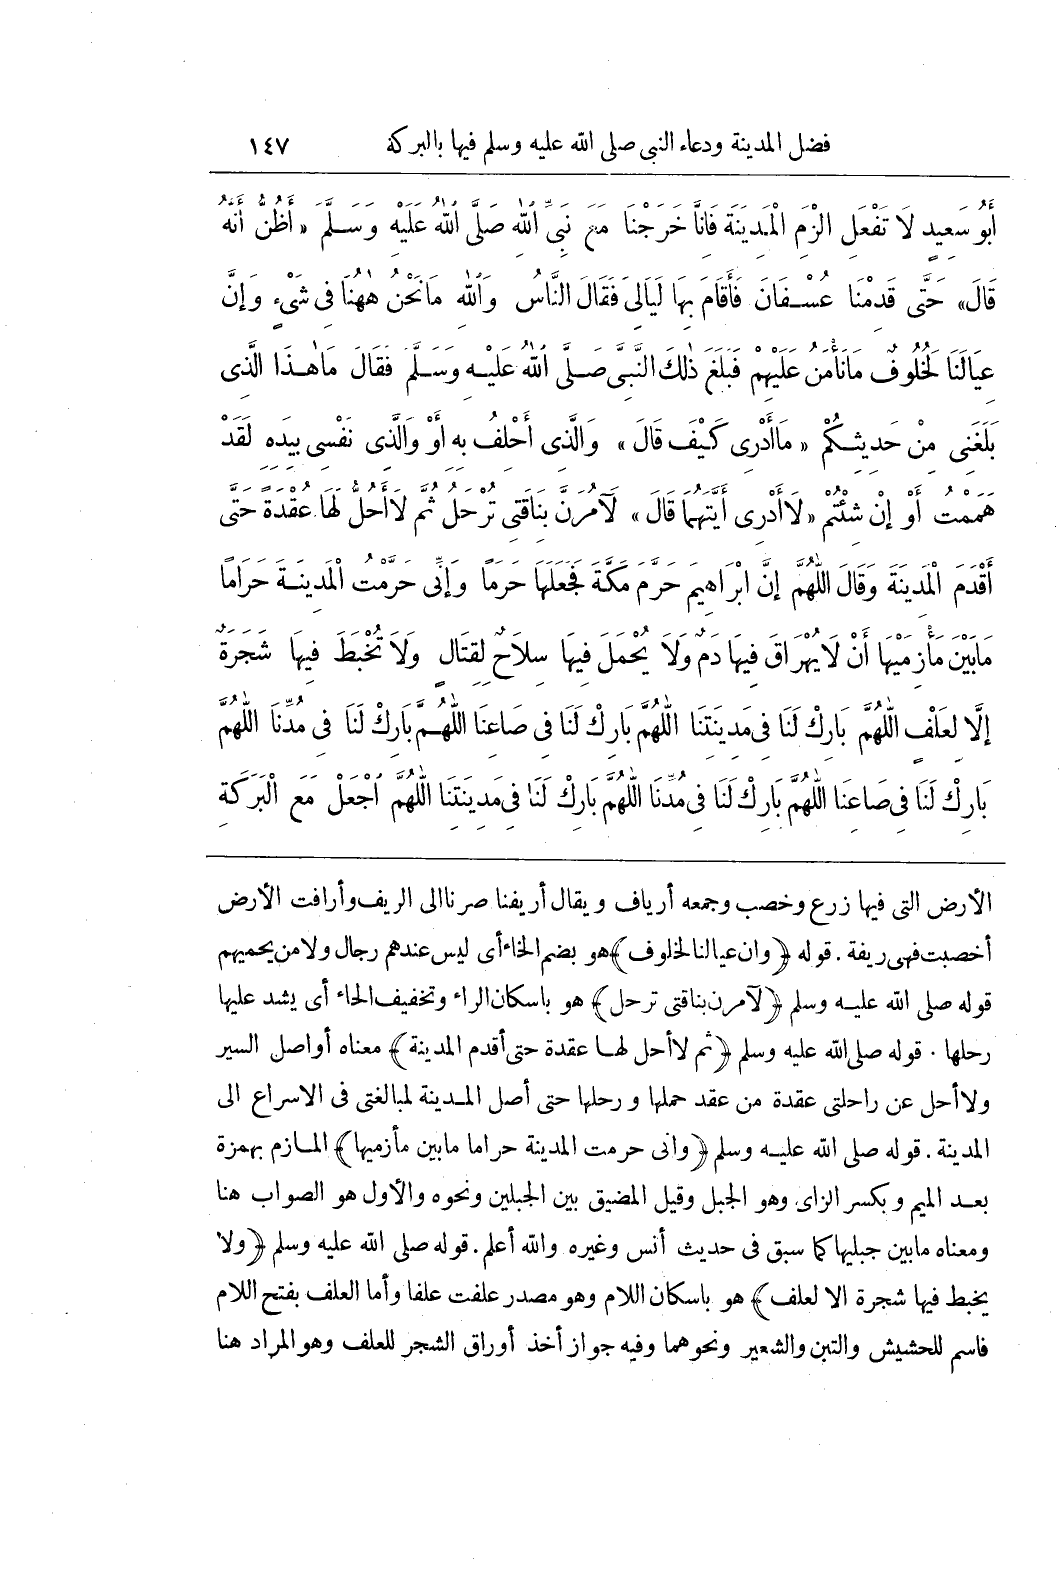 فضل المدينة ودعاء النبى صلى الله عليه وسلم فيها بالبركة ١٤٧
أَبُو سَعِيدٍ لَا تَفْعَلِ الْزَمِ الْمَدِينَةَ فَانَّا خَرَجْنَا مَعَ نَبِىِّ اللهِ صَلَّى اللهُ عَلَيْهِ وَسَلَّمَ «أَظُنُّ أَنَّهُ
قَالَ» حَتَّى قَدِمْنَا عُسْفَانَ فَأَقَامَ بِهَا لَيَالِىَ فَقَالَ النَّاسُ وَاللهِ مَا نَحْنُ هٰهُنَا فِى شَىْءٍ وَإِنَّ
عِيَالَنَا لَخُلُوفٌ مَا نَأْمَنُ عَلَيْهِمْ فَبَلَغَ ذٰلِكَ النَّبِىَّ صَلَّى اللهُ عَلَيْهِ وَسَلَّمَ فَقَالَ مَا هٰذَا الَّذِى
بَلَغَنِى مِنْ حَدِيثِكُمْ «مَا أَدْرِى كَيْفَ قَالَ» وَالَّذِى أَحْلِفُ بِهِ أَوْ وَالَّذِى نَفْسِى بِيَدِهِ لَقَدْ
هَمَمْتُ أَوْ إِنْ شِئْتُمْ «لَا أَدْرِى أَيَّتَهُمَا قَالَ» لَآمُرَنَّ بِنَاقَتِى تُرْحَلُ ثُمَّ لَا أَحُلُّ لَهَا عُقْدَةً حَتَّى
أَقْدَمَ الْمَدِينَةَ وَقَالَ اللّٰهُمَّ إِنَّ ابْرَاهِيمَ حَرَّمَ مَكَّةَ فَجَعَلَهَا حَرَمًا وَإِنِّى حَرَّمْتُ الْمَدِينَةَ حَرَامًا
مَا بَيْنَ مَأْزِمَيْهَا أَنْ لَا يُهْرَاقَ فِيهَا دَمٌ وَلَا يُحْمَلَ فِيهَا سِلَاحٌ لِقِتَالٍ وَلَا تُخْبَطَ فِيهَا شَجَرَةٌ
إِلَّا لِعَلْفٍ اللّٰهُمَّ بَارِكْ لَنَا فِى مَدِينَتِنَا اللّٰهُمَّ بَارِكْ لَنَا فِى صَاعِنَا اللّٰهُمَّ بَارِكْ لَنَا فِى مُدِّنَا اللّٰهُمَّ
بَارِكْ لَنَا فِى صَاعِنَا اللّٰهُمَّ بَارِكْ لَنَا فِى مُدِّنَا اللّٰهُمَّ بَارِكْ لَنَا فِى مَدِينَتِنَا اللّٰهُمَّ اجْعَلْ مَعَ الْبَرَكَةِ
الأرض التى فيها زرع وخصب وجمعه أرياف ويقال أريفنا صرنا الى الريف وأرافت الأرض
أخصبت فهى ريفة . قوله ﴿وان عيالنا لخلوف﴾ هو بضم الخاء أى ليس عندهم رجال ولا من يحميهم
قوله صلى الله عليه وسلم ﴿لآمرن بناقتى ترحل﴾ هو باسكان الراء وتخفيف الحاء أى يشد عليها
رحلها . قوله صلى الله عليه وسلم ﴿ثم لا أحل لها عقدة حتى أقدم المدينة﴾ معناه أواصل السير
ولا أحل عن راحلتى عقدة من عقد حملها ورحلها حتى أصل المدينة لمبالغتى فى الاسراع الى
المدينة . قوله صلى الله عليه وسلم ﴿وانى حرمت المدينة حراما ما بين مأزميها﴾ المازم بهمزة
بعد الميم وبكسر الزاى وهو الجبل وقيل المضيق بين الجبلين ونحوه والأول هو الصواب هنا
ومعناه ما بين جبليها كما سبق فى حديث أنس وغيره والله أعلم . قوله صلى الله عليه وسلم ﴿ولا
يخبط فيها شجرة الا لعلف﴾ هو باسكان اللام وهو مصدر علفت علفا وأما العلف بفتح اللام
فاسم للحشيش والتبن والشعير ونحوهما وفيه جواز أخذ أوراق الشجر للعلف وهو المراد هنا